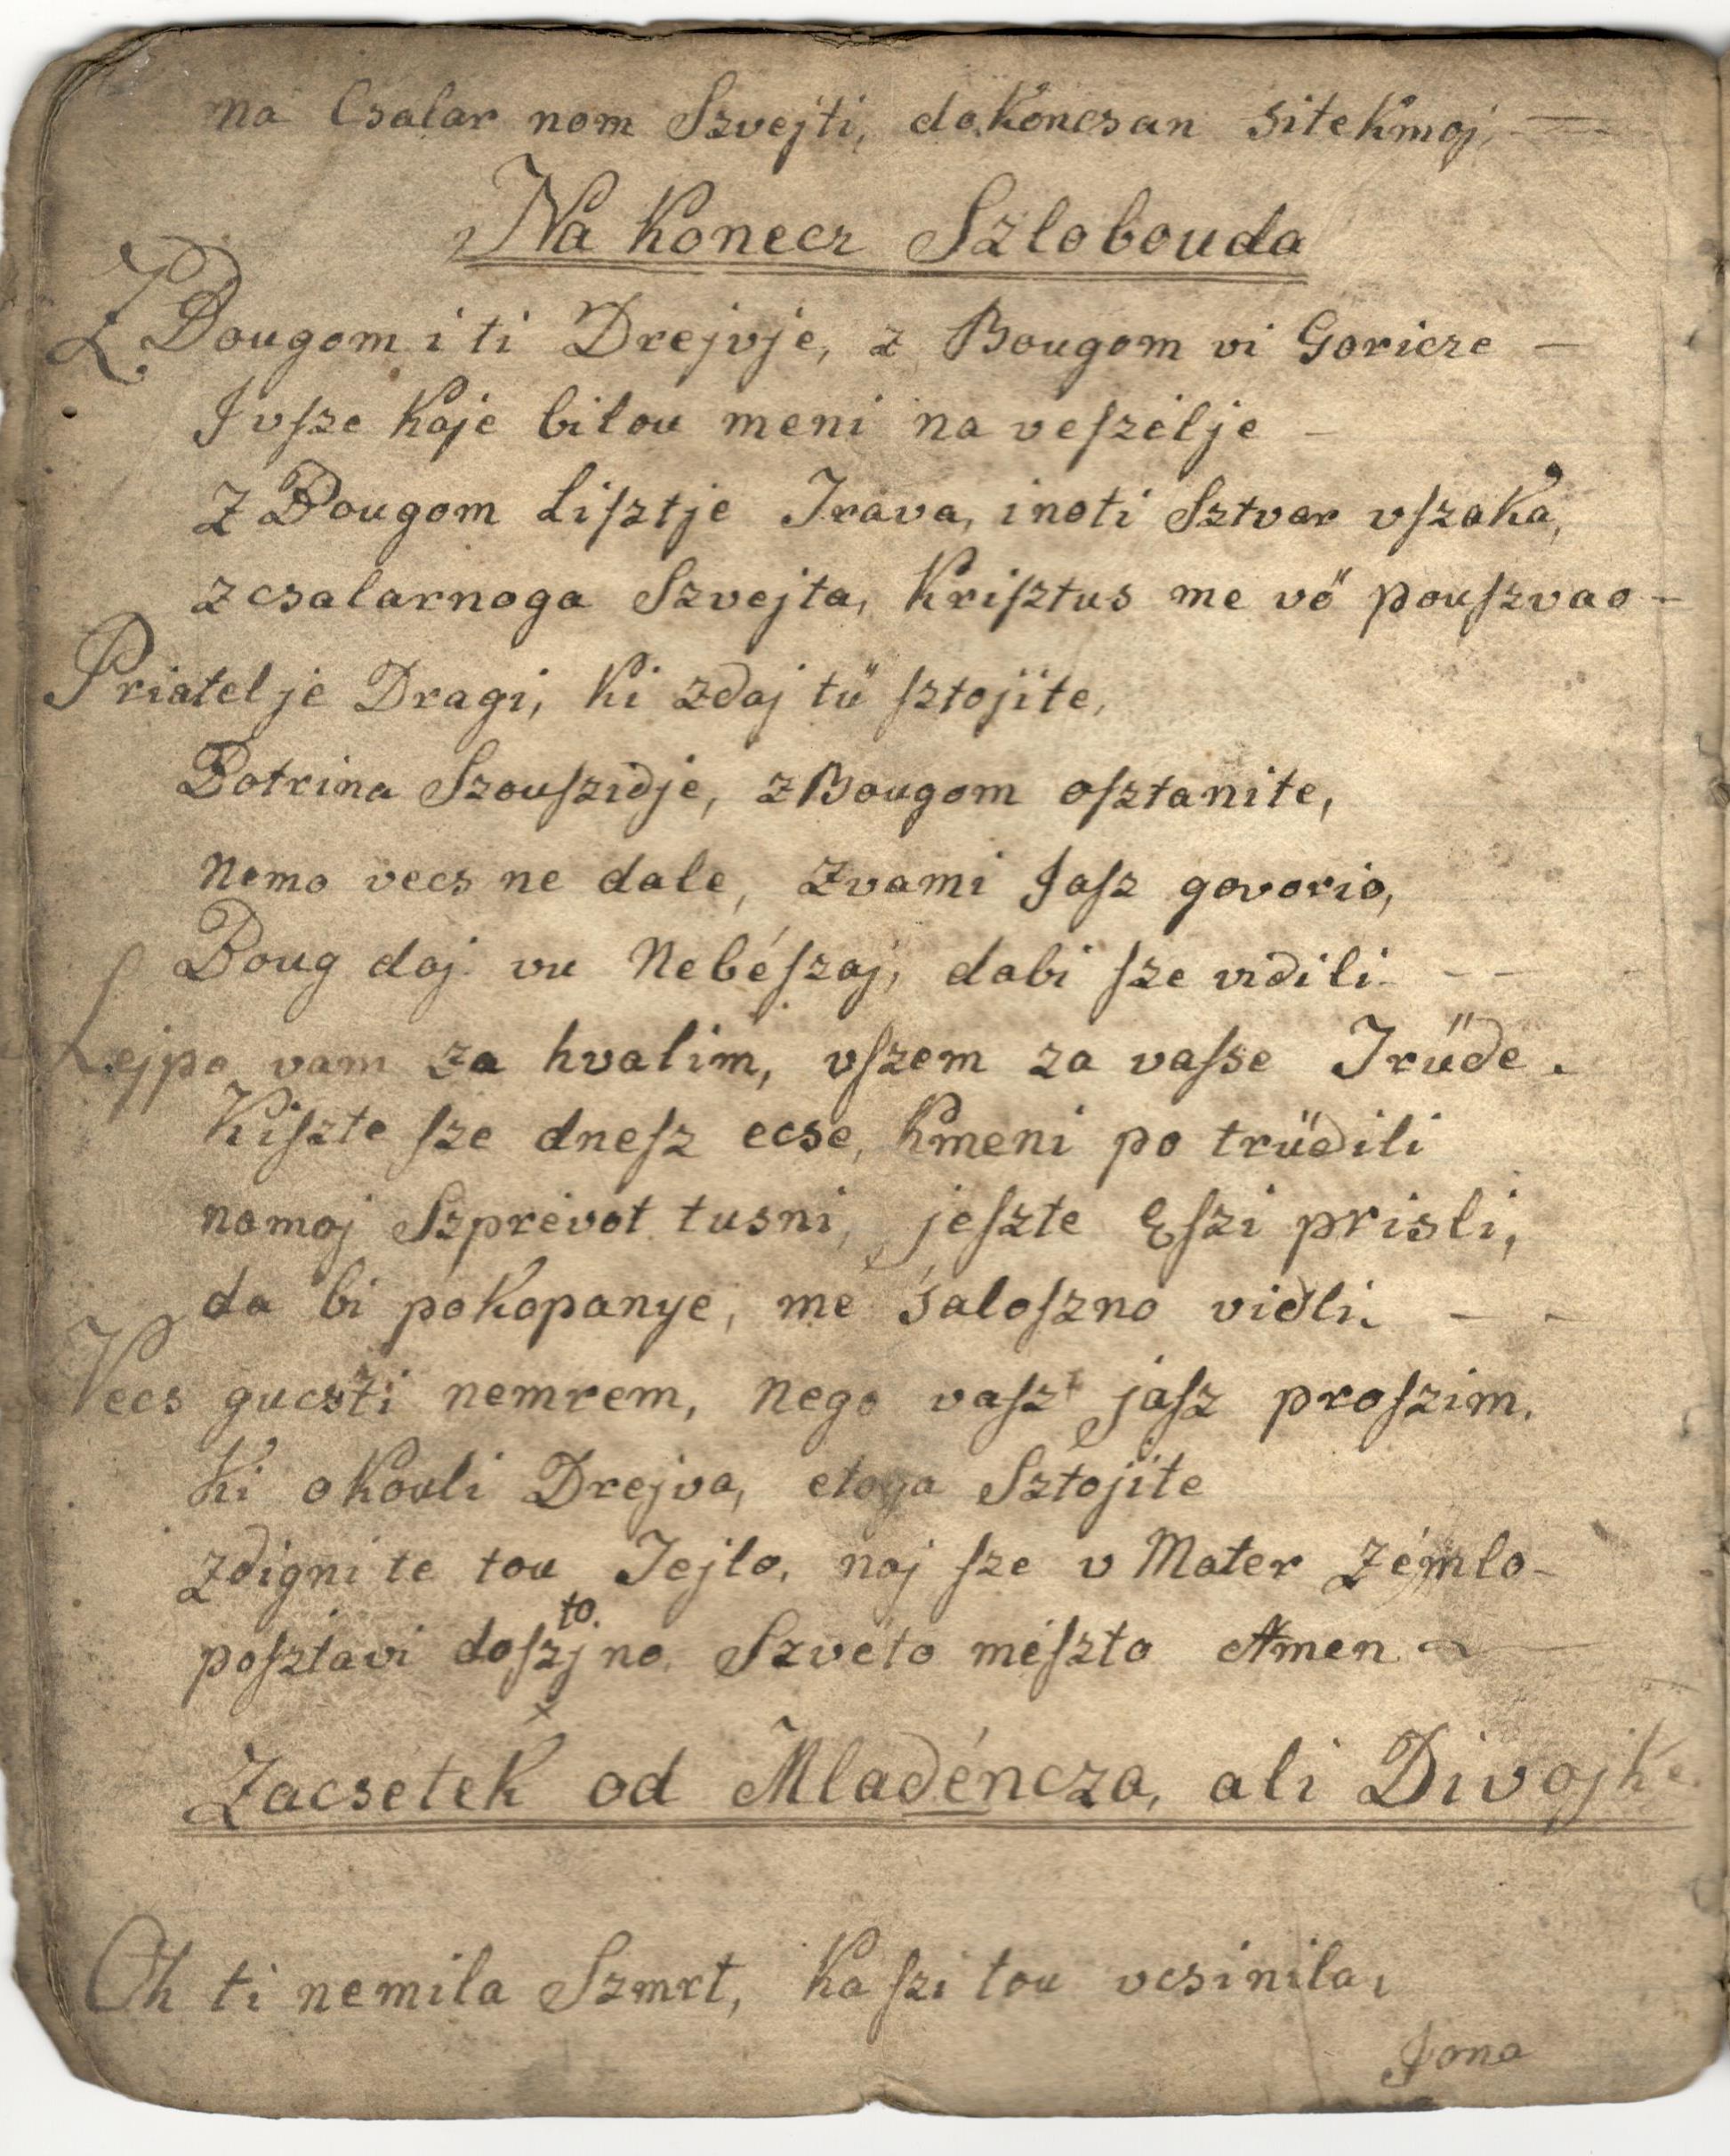 na Csalar nom Szvejti, dokoncsan sitek moj, —
Na Konecz Szlobouda
Z Bougom i ti Drejvje, z Bougom vi Goricze —
I vſze kaje bilou meni na veſzélje —
Z Bougom Liſztje Trava, inoti Sztvar vſzaka,
z csalarnoga Szvejta, Kriſztus me vö pouſzvao —
Priatelje Dragi, ki zdaj tü ſztojite,
Botrina Szouſzidje, z Bougom oſztanite,
Nemo vecs ne dale, zvami Jaſz govorio,
Boug daj vu Nebéſzaj, dabi ſze vidili — —
Lejpo vam za hvalim, vſzem za vaſse Trüde.
Kiſzte ſze dneſz ecse, kmeni po trüdili
na moj Szprevot tusni, jeſzte Eſzi prisli,
da bi pokopanye, me saloſzno vidli. — —
Vecs gucsti nemrem, nego vaſz jaſz proſzim.
Ki okouli Drejva, etoga Sztojite
zdignite tou Tejlo, naj ſze v Mater Zémlo —
poſztavi doſztojno Szvéto méſzto Amen —
Zacsétek od Mladéncza, ali Divojke.
Oh ti nemila Szmrt, ka ſzi tou vcsinila,